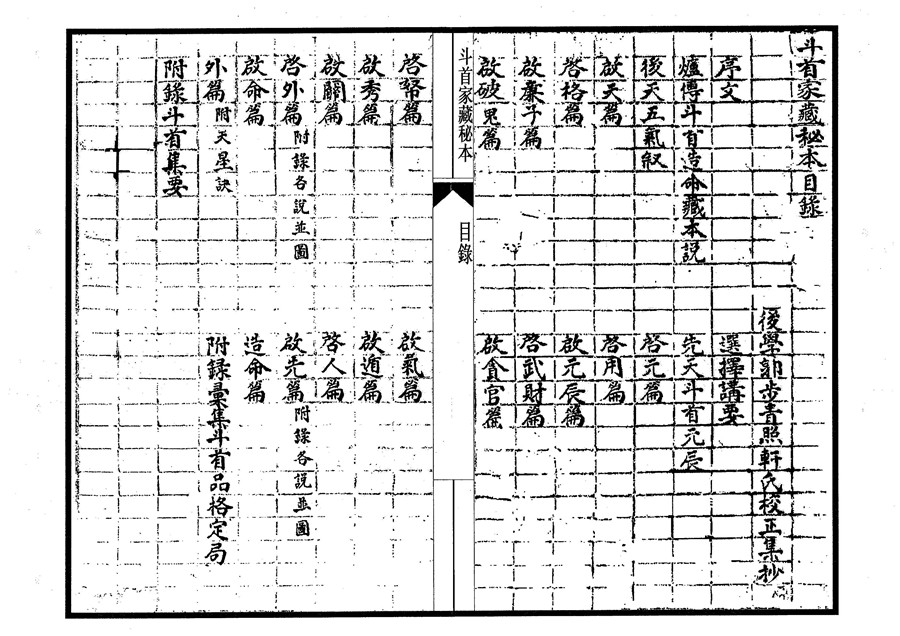 斗首家藏秘本目錄
後學郭步青照軒氏校正集抄
序文
選擇講要
爐傳斗首造命藏本説
先天斗首元辰
後天五氣叙
啓元篇
啟天篇
啓用篇
啓格篇
啟元辰篇
啟廉子篇
啓武財篇
啟破鬼篇
啟貪官篇
斗首家藏秘本
目錄
啓幣篇
啟氣篇
啟秀篇
啟遁篇
啟關篇
啓人篇
啓外篇 附錄各説並圖
啟先篇 附錄各説並圖
啟命篇
造命篇
外篇 附天星訣
附録彙集斗首品格定局
附錄斗首集要